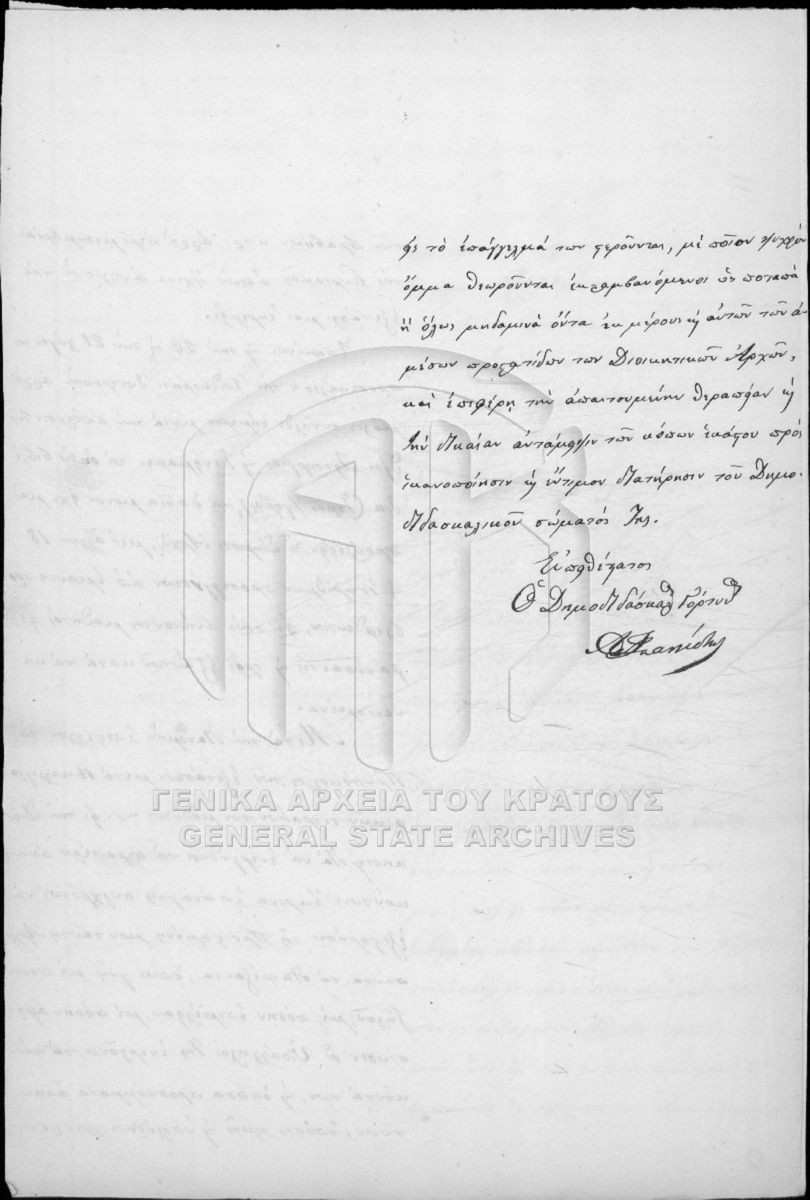 τὸ ἐπάγγελμά των φεροῦνται, μὲ ποῖον ψυχρὸν
ὄμμα θεωροῦνται ἐκλαμβανόμενοι ὡς ποταπὰ
ἢ ὅλως μηδαμινὰ ὄντα ἐκ μέρους καὶ αὐτῶν τῶν ἀ-
μέσων προστατίδων των Διοικητικῶν Ἀρχῶν,
καὶ ἐπιφέρῃ τὴν ἀπαιτουμένην θεραπείαν καὶ
τὴν δικαίαν ἀντάμειψιν τῶν κόπων ἑκάστου πρὸς
ἱκανοποίησιν καὶ ἔντιμον διατήρησιν τοῦ Δημο-
διδασκαλικοῦ σώματός της.
Εὐπειθέστατος
Ὁ Δημοδιδάσκαλ Γόρτυν
ΓΕΝΙΚΑ ΑΡΧΕΙΑ ΤΟΥ ΚΡΑΤΟΥΣ
GENERAL STATE ARCHIVES